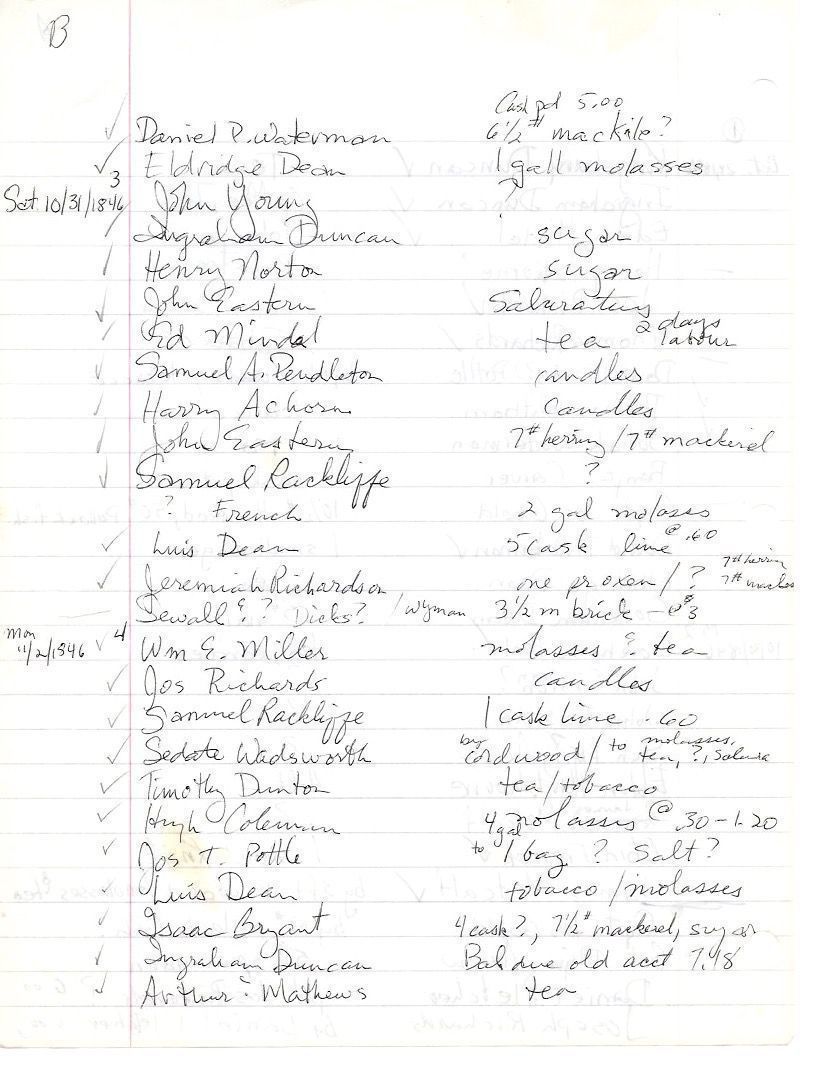 B
Cash pd 5.00
✓ Daniel P. Waterman 6 1/2 # mackile?
✓ Eldridge Dean 1 gall molasses
3
Sat 10/31/1846 John Young ?
Ingraham Duncan sugar
Henry Norton sugar
✓ John Eastern Saluratus
✓ Ed Mindal tea 2 days labour
✓ Samuel A. Pendleton candles
Harry Achorn Candles
John Eastern 7# herring / 7# mackerel
✓ Samuel Rackliffe ?
? French 2 gal molasses
✓ Luis Dean 5 cask lime @ .60
✓ Jeremiah Richardson one pr oxen / ? 7# herrin 7# mackel
— Sewall & ? Dicks? / Wyman 3 1/2 m brick - @ $3
4
Mon 11/2/1846 ✓ Wm E. Miller molasses & tea
✓ Jos Richards candles
✓ Samuel Rackliffe 1 cask lime .60
✓ Sedate Wadsworth by cordwood / to molasses, tea, ?, Salura
✓ Timothy Dunton tea/tobacco
✓ Hugh Coleman 4 gal molasses @ .30 - 1.20
✓ Jos T. Pottle to 1 bag ? Salt?
✓ Luis Dean tobacco / molasses
✓ Isaac Bryant 4 cask?, 7 1/2 # mackerel, sugar
✓ Ingraham Duncan Bal due old acct 7.48
✓ Arthur? Mathews tea